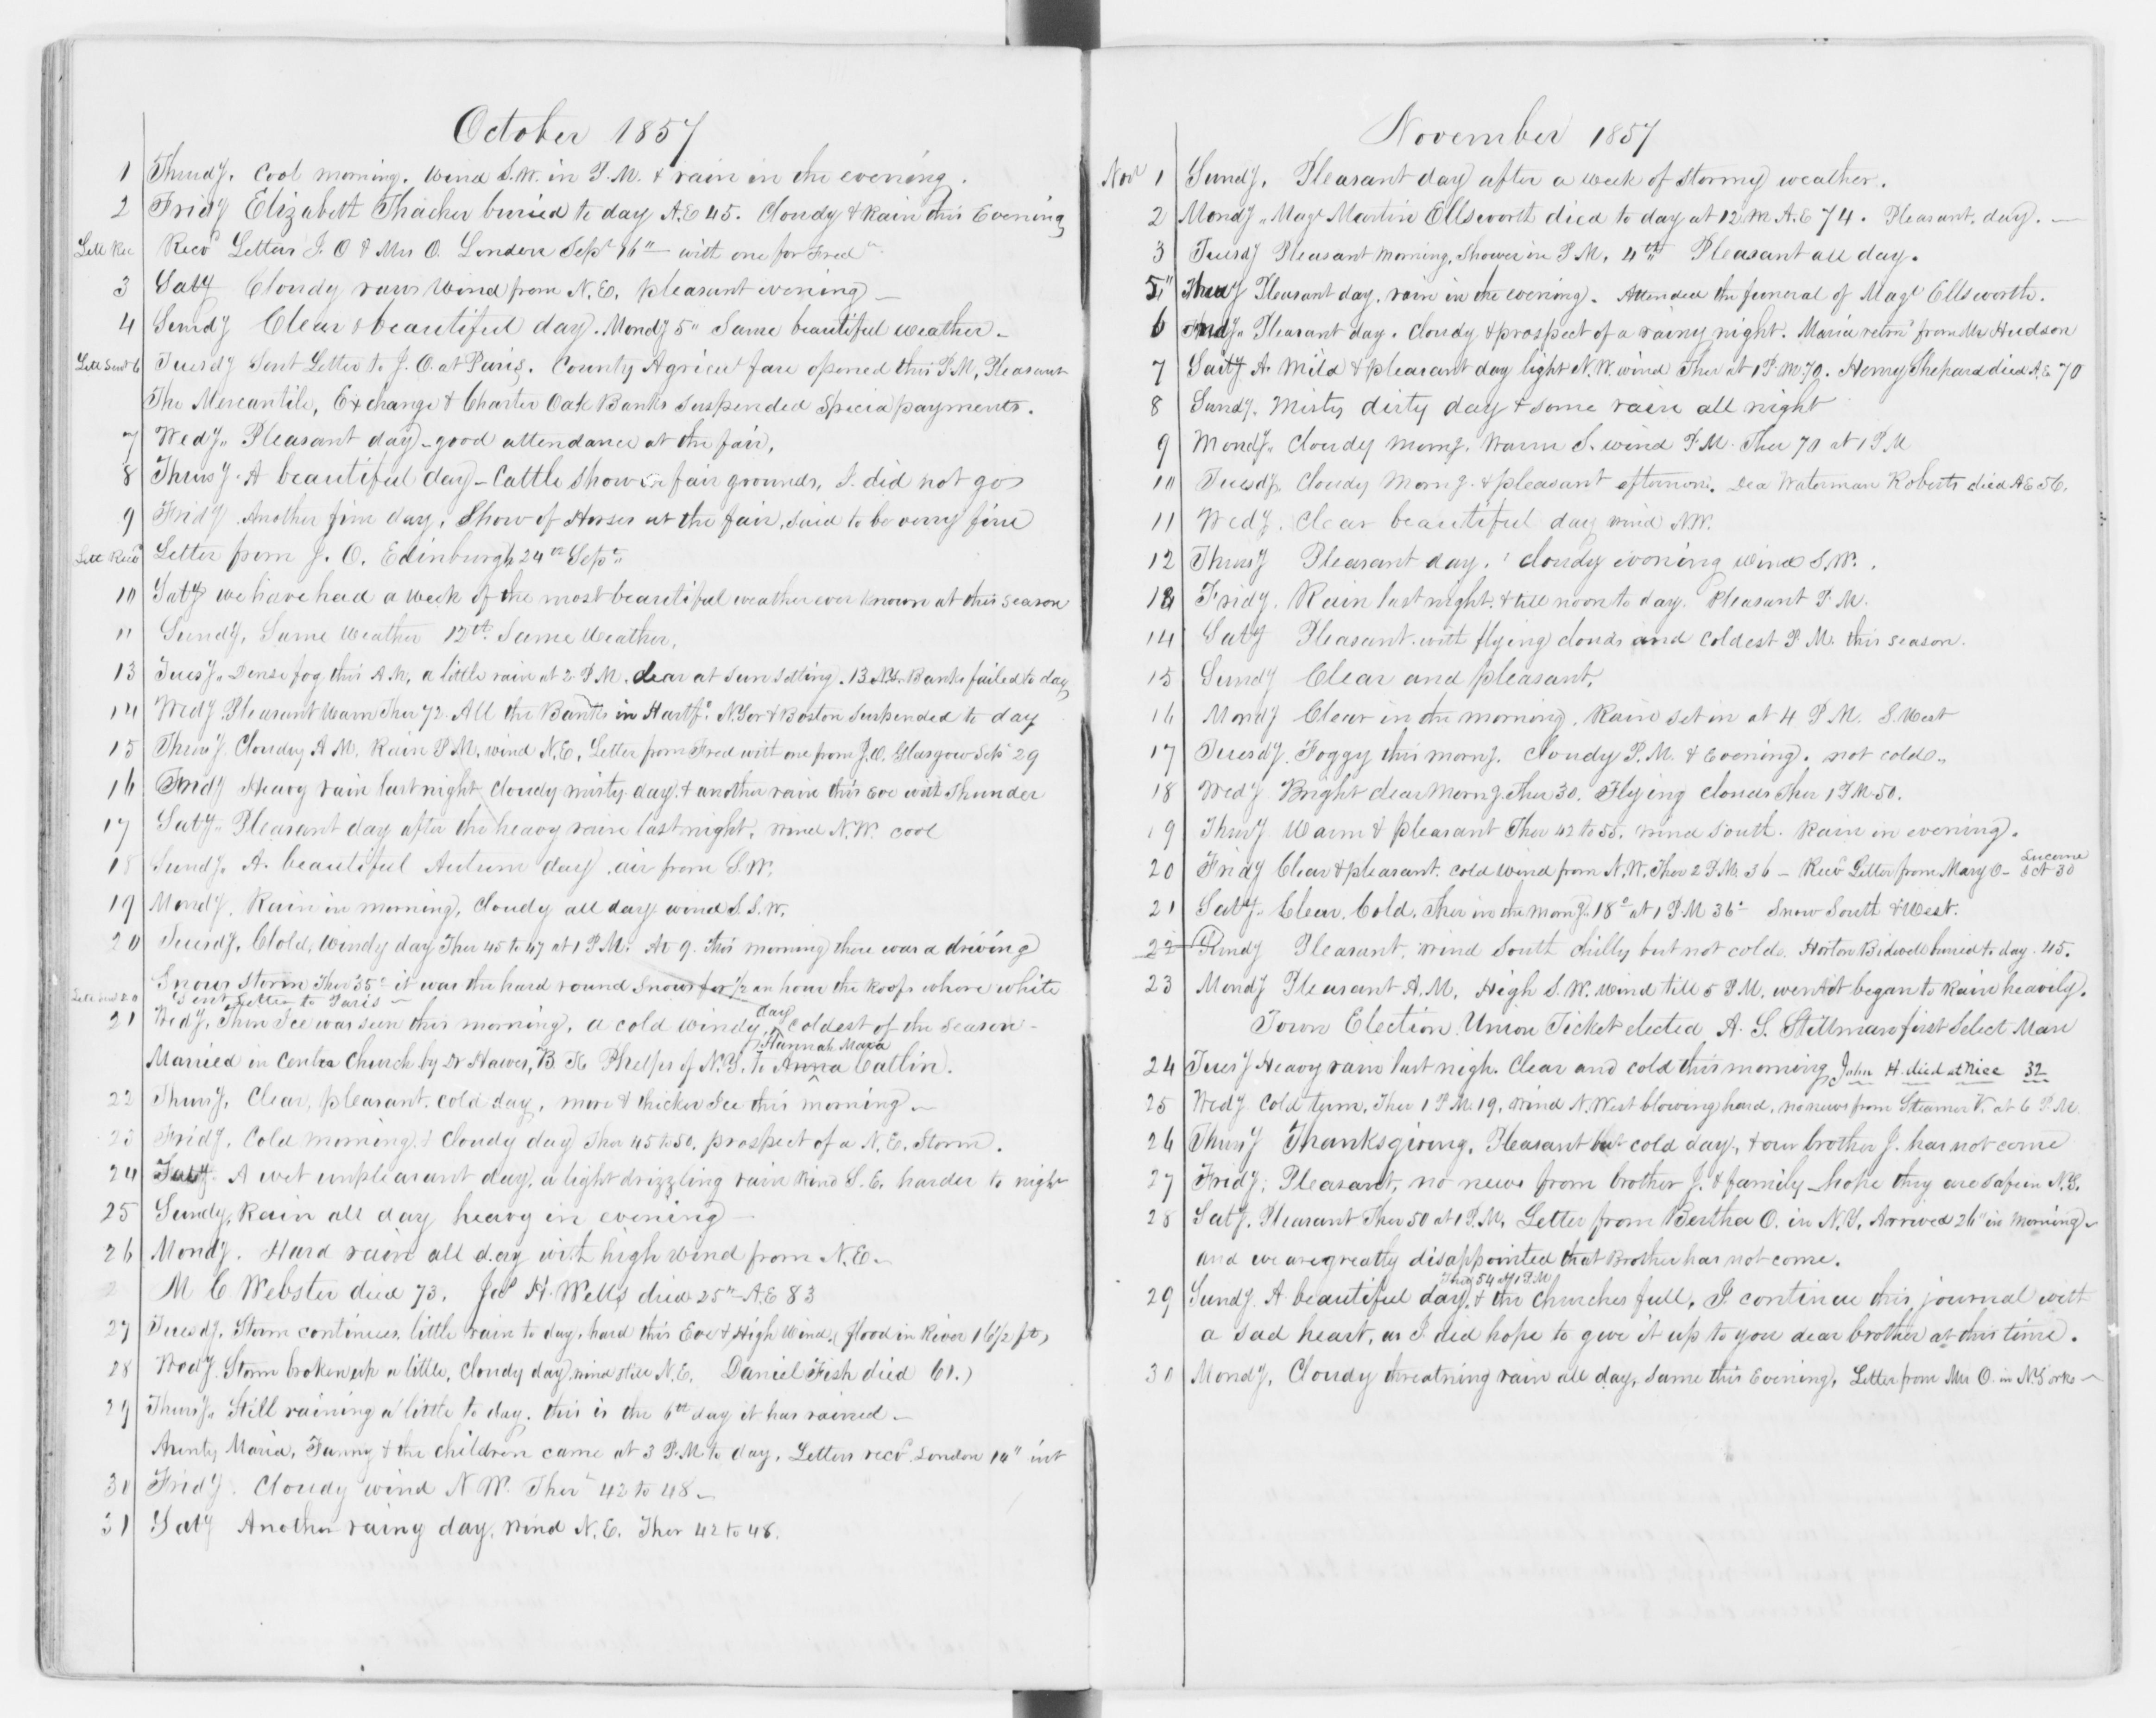 October 1857
1 Thursdy. Cool morning. Wind S.W. in P.M. & rain in the evening.
2 Fridy Elizabeth Thacher buried to day A.E 45. Cloudy & Rain this Evening
Lett Rec Recd Letters J. O & Mrs O. London Sept 16" — with one for Fred
3 Saty Cloudy raw Wind from N.E. pleasant evening —
4 Sundy Clear & beautiful day. Mondy 5" Same beautiful weather —
Lett Sent 6 Tuesdy Sent Letter to J. O. at Paris. County Agricul fare opened this P.M, Pleasant
The Mercantile, Exchange & Charter Oak Banks Suspended Specia payments.
7 Wedy" Pleasant day — good attendance at the fair,
8 Thursy. A beautiful day — Cattle show on fair grounds, I did not go
9 Fridy Another fine day, Show of Horses at the fair, said to be very fine
Lett Recd Letter from J. O. Edinburgh 24th Sep"
10 Saty we have had a week of the most beautiful weather ever known at this season
11 Sundy, Same Weather 12th Same Weather,
13 Tuesy" Dense fog this A.M, a little rain at 2 P.M. clear at Sun Setting. 13 N.Y. Banks failed to day
14 Wedy Pleasant Warm Ther 72. All the Banks in Hartfd N.Yor & Boston Suspended to day
15 Thursy. Cloudy A M. Rain P.M, wind N.E, Letter from Fred with one from J.O. Glasgow Sep 29
16 Fridy Heavy rain last night, Cloudy misty day, & another rain this eve with Thunder
17 Saty" Pleasant day after the heavy rain last night, Wind N.W. cool
18 Sundy. A. beautiful Autum day, air from S.W.
19 Mondy. Rain in morning, Cloudy all day wind S.S.W.
20 Tuesdy. Clold, Windy day Ther 45 to 47 at 1 P.M. At 9. this morning there was a driving
Snow Storm Ther 35° it was the hard round Snow for 1/2 an hour the Roofs whare white
Lett Sent 20 Sent Letter to Paris —
21 Wedy, Thin Ice was seen this morning, a cold windy day, coldest of the season —
Hannah Maria
Married in Center Church by Dr Hawes, B K Phelps of N.Y. to Anna Catlin.
22 Thursy. Clear, pleasant. cold day, more & thicker Ice this morning —
23 Fridy. Cold morning, & Cloudy day Ther 45 to 50. prospect of a N.E. Storm.
24 Saty. A wet unpleasant day, a light drizzling rain wind S.E. harder to night
25 Sundy, Rain all day heavy in evening —
26 Mondy. Hard rain all day with high wind from N.E.
M C Webster died 73. Jas H. Wells died 25" A.E 83
27 Tuesdy. Storm continues, little rain to day, hard this Eve & High Wind, (flood in River 16 1/2 ft,
28 Wedy. Storm broken up a little, Cloudy day, wind still N.E. Daniel Fish died 61.)
29 Thursy" Still raining a little to day. this is the 6th day it has rained —
Aunty Maria, Fanny & the children came at 3 P.M to day, Letters recd London 14" inst
30 Fridy. Cloudy wind N.W. Ther 42 to 48 —
31 Saty Another rainy day, wind N.E. Ther 42 to 48.
November 1857
Nov 1 Sundy, Pleasant day after a week of stormy weather.
2 Mondy" Majr Martin Ellsworth died to day at 12 M A.E 74. Pleasant. day. —
3 Tuesdy Pleasant Morning, Shower in P.M, 4th Pleasant all day.
5" Thursy Pleasant day, rain in the evening. Attended the funeral of Majr Ellsworth.
6 Fridy" Pleasant day. Cloudy & prospect of a rainy night. Maria retrnd from Mr Hudson
7 Saty. A. Mild & pleasant day light N.W. wind Ther at 1 P.M. 70. Henry Shepard died A.E 70
8 Sundy. Misty dirty day & some rain all night
9 Mondy" Cloudy morng. Warm S. wind P.M. Ther 70 at 1 P.M
10 Tuesdy. Cloudy Morng. & pleasant afternoon. Dea Waterman Roberts died AE 56.
11 Wedy. Clear beautiful day wind N.W.
12 Thursy Pleasant day. Cloudy evening Wind S.W.
13 Fridy. Rain last night. & till noon to day. Pleasant P.M.
14 Saty Pleasant with flying clouds and coldest P.M. this season.
15 Sundy Clear and pleasant.
16 Mondy Clear in the morning. Rain set in at 4 P.M. S.West
17 Tuesdy. Foggy this morng. Cloudy P.M. & Evening. not cold"
18 Wedy Bright clear Morng. Ther 30. Flying Clouds Ther 1 P.M 50.
19 Thursy. Warm & pleasant Ther 42 to 55. wind South. Rain in evening.
20 Fridy Clear & pleasant. cold wind from N.W. Ther 2 P.M. 36 — Recd Letter from Mary O — Lucerne Oct 30
21 Saty. Clear. Cold. Ther in the morng. 18° at 1 P.M 36° Snow South & West.
22 Sundy Pleasant, wind South chilly but not cold. Horton Bidwell buried to day. 45.
23 Mondy Pleasant A.M, High S.W. wind till 5 P.M. when it began to Rain heavily.
Town Election Union Ticket elected A. S. Stillman first Select Man
24 Tuesy Heavy rain last nigh. Clear and cold this morning. John H. died at Nice 32
25 Wedy Cold turn, Ther 1 P.M 19, Wind N.West blowing hard, no news from Steamer V. at 6 P.M.
26 Thursy Thanksgiving. Pleasant but cold day, & our brother J. has not come
27 Fridy. Pleasant, no news from brother J. & family — hope they are safe in N.Y.
28 Saty. Pleasant Ther 50 at 1 P.M, Letter from Bertha O. in N.Y, Arrived 26" in morning —
and we are greatly disappointed that Brother has not come.
Ther 54 at 1 P.M
29 Sundy. A beautiful day, & the Churches full, I continue this journal with
a sad heart, as I did hope to give it up to you dear brother at this time.
30 Mondy, Cloudy threatning rain all day, same this Evening, Letter from Mrs O. in N.York —